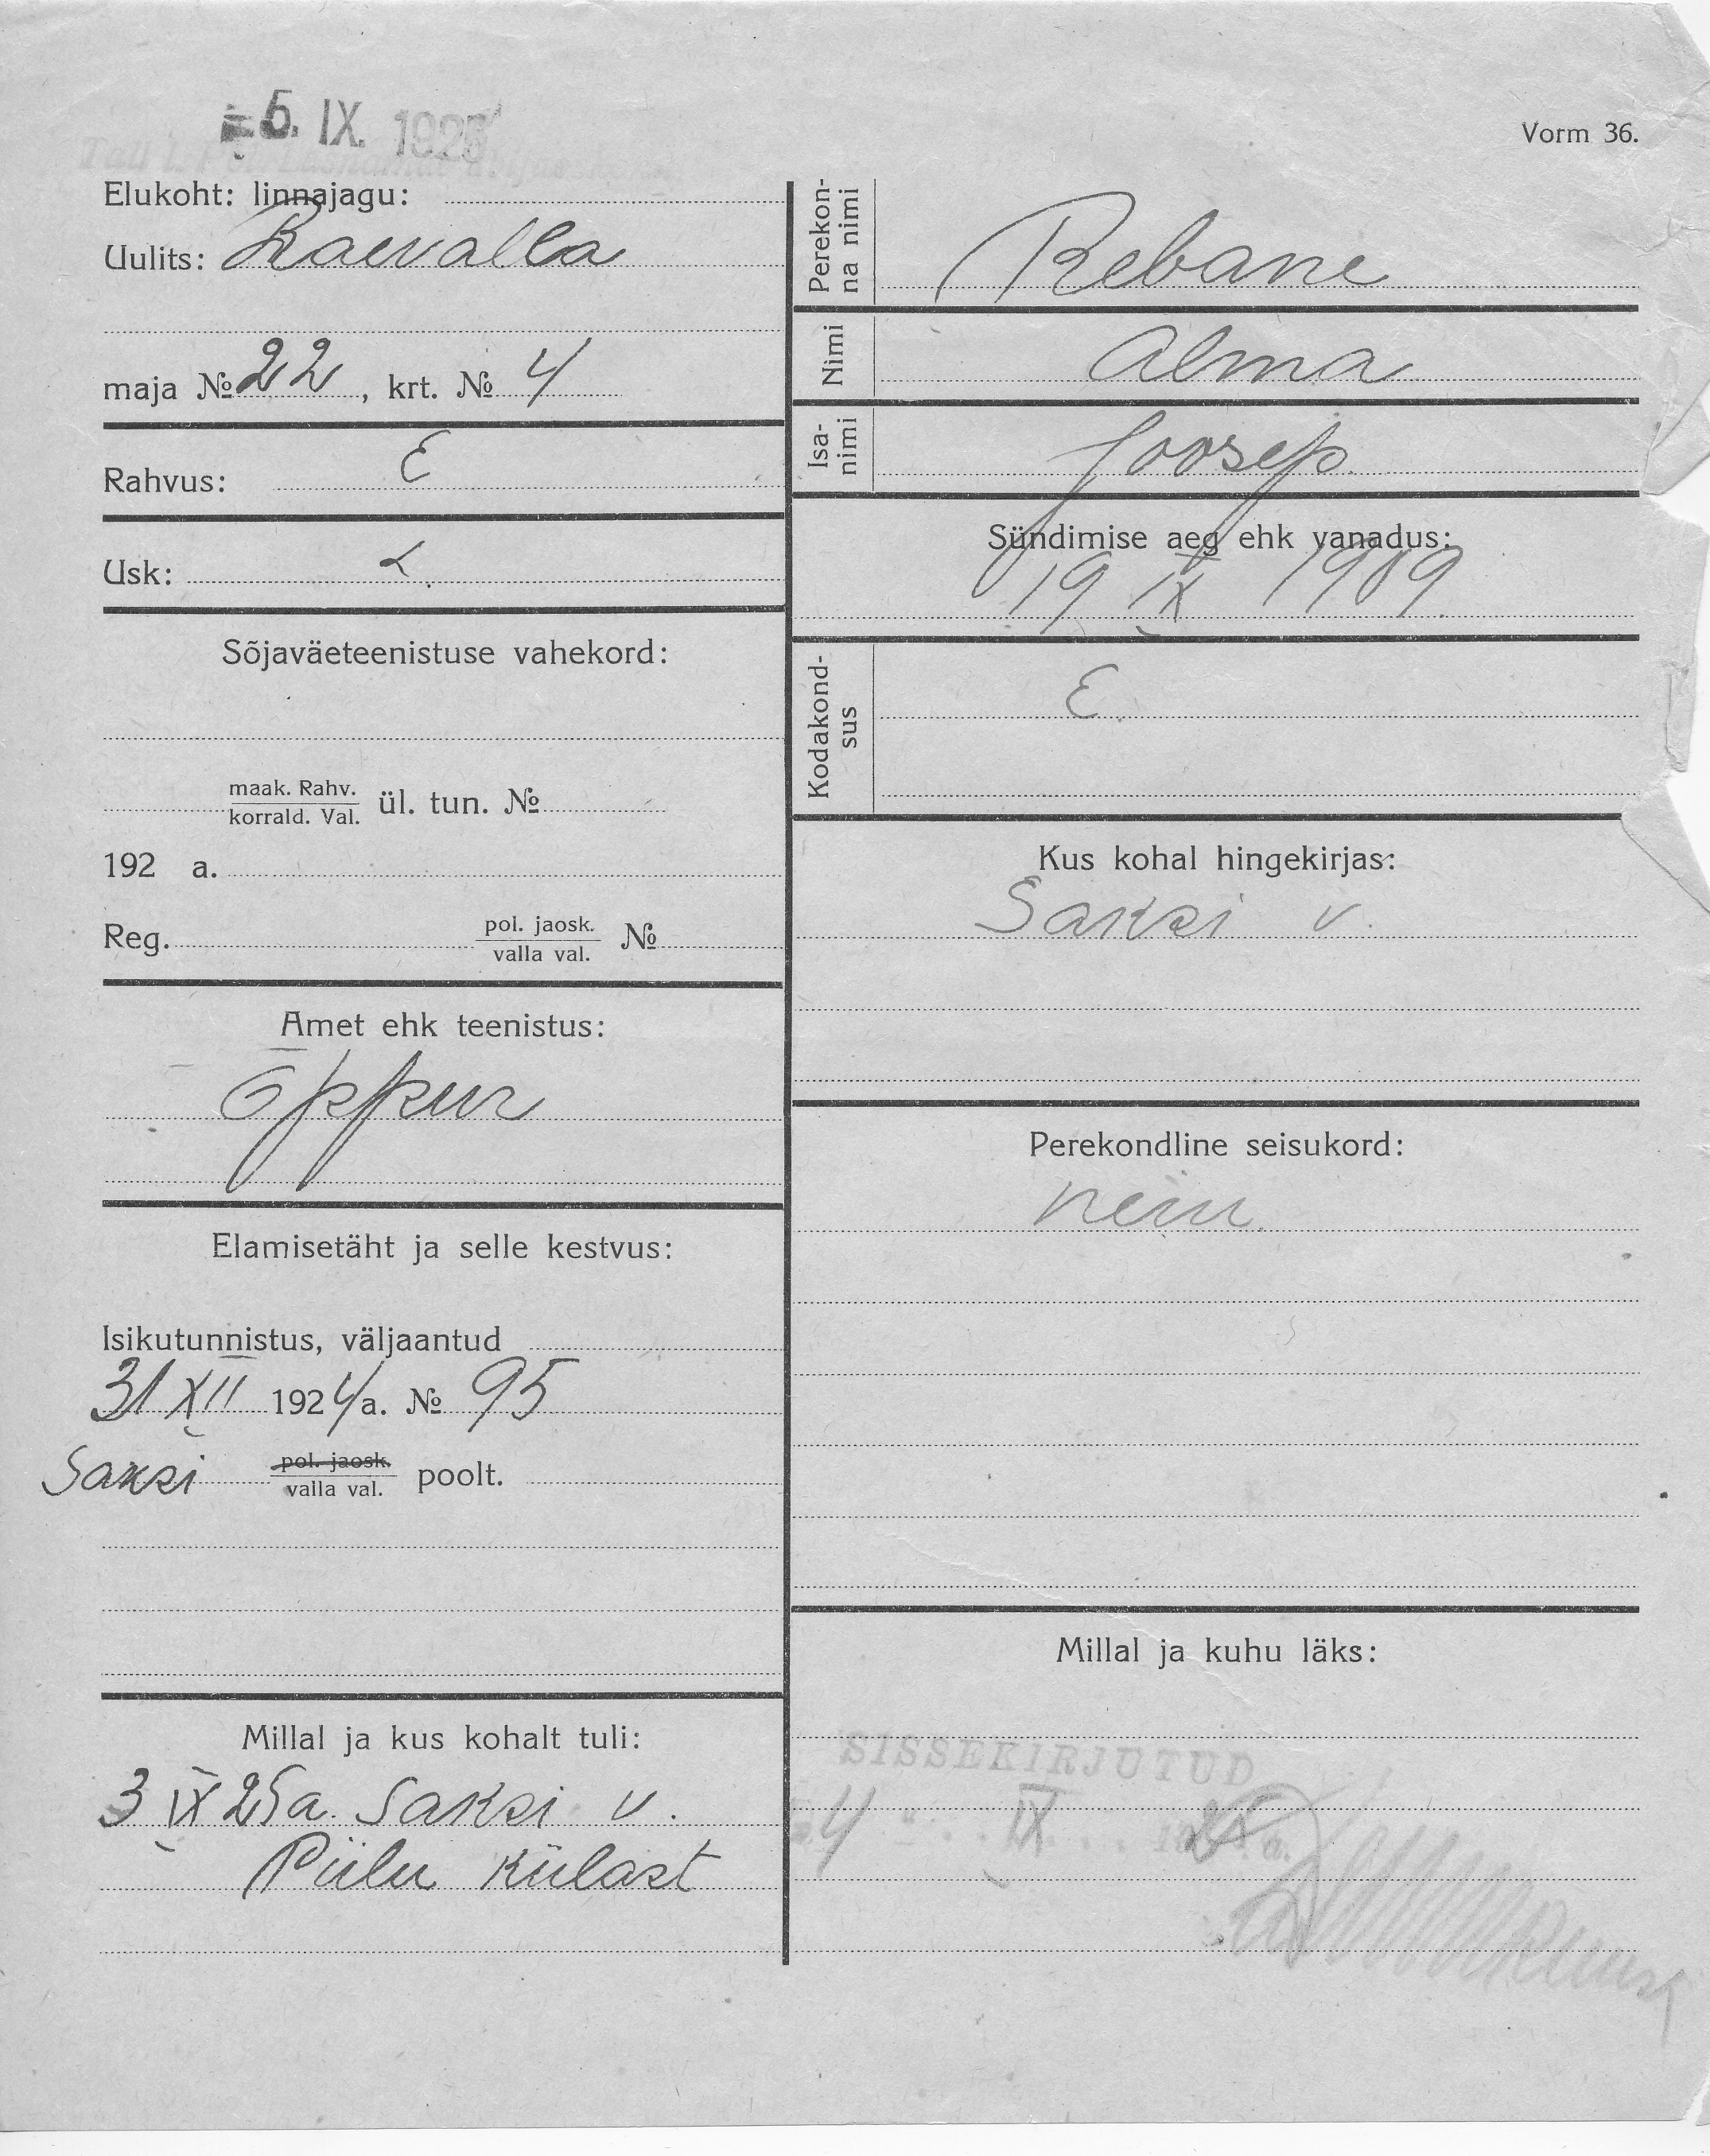 5. IX. 1925
Vorm 36.
Elukoht: linnajagu:
Uulits: Raevalla
maja № 22, krt. № 4
Rahvus: E
Usk: L.
Sõjaväeteenistuse vahekord:
maak. Rahv.
korrald. Val. ül. tun. №
192 a.
Reg. pol. jaosk.
valla val. №
Amet ehk teenistus:
Õppur
Elamisetäht ja selle kestvus:
Isikutunnistus, väljaantud
31 XII 1924 a. № 95
Saksi pol. jaosk.
valla val. poolt.
Millal ja kus kohalt tuli:
3 IX 25 a. Saksi v.
Piilu külast
Perekon-
na nimi Rebane
Nimi Alma
Isa-
nimi Joosep
Sündimise aeg ehk vanadus:
19 IX 1909.
Kodakond-
sus E.
Kus kohal hingekirjas:
Saksi v.
Perekondline seisukord:
neiu.
Millal ja kuhu läks:
SISSEKIRJUTUD
4 " IX 1925 a.